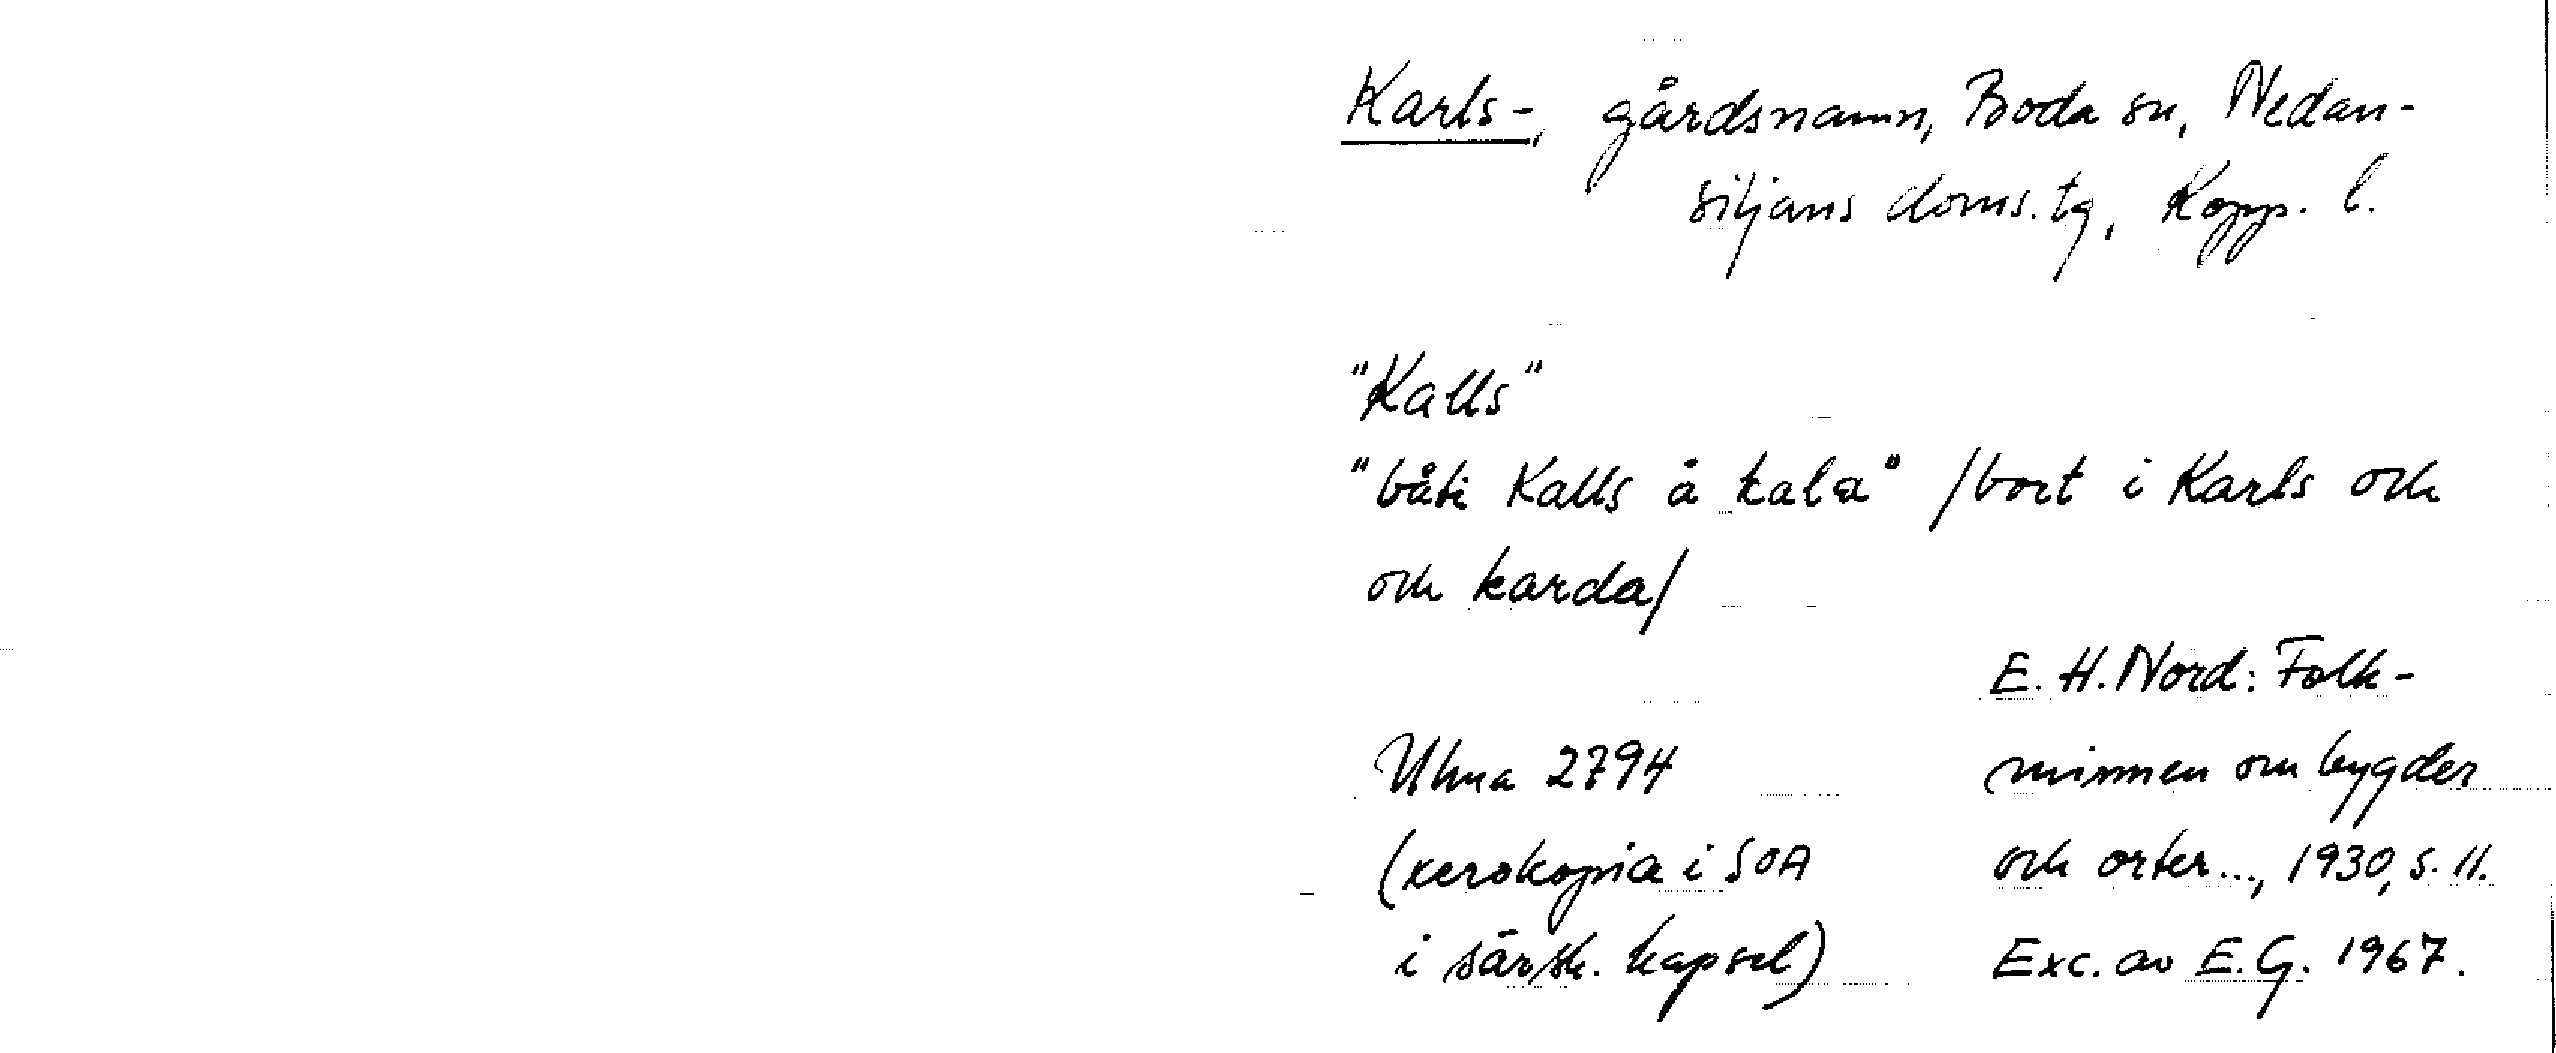 Karls-, gårdsnamn, Boda sn, Nedan-
siljans doms.tg, Kopp. l.
"Kalls"
"båti Kalls å kala" /bort i Karls och
och karda/
E. H. Nord: Folk-
minnen om bygder
och orter..., 1930, s. 11.
Exc. av E.G. 1967.
Ulma 2794
(xerokopia i SOA
i särsk. kapsel)